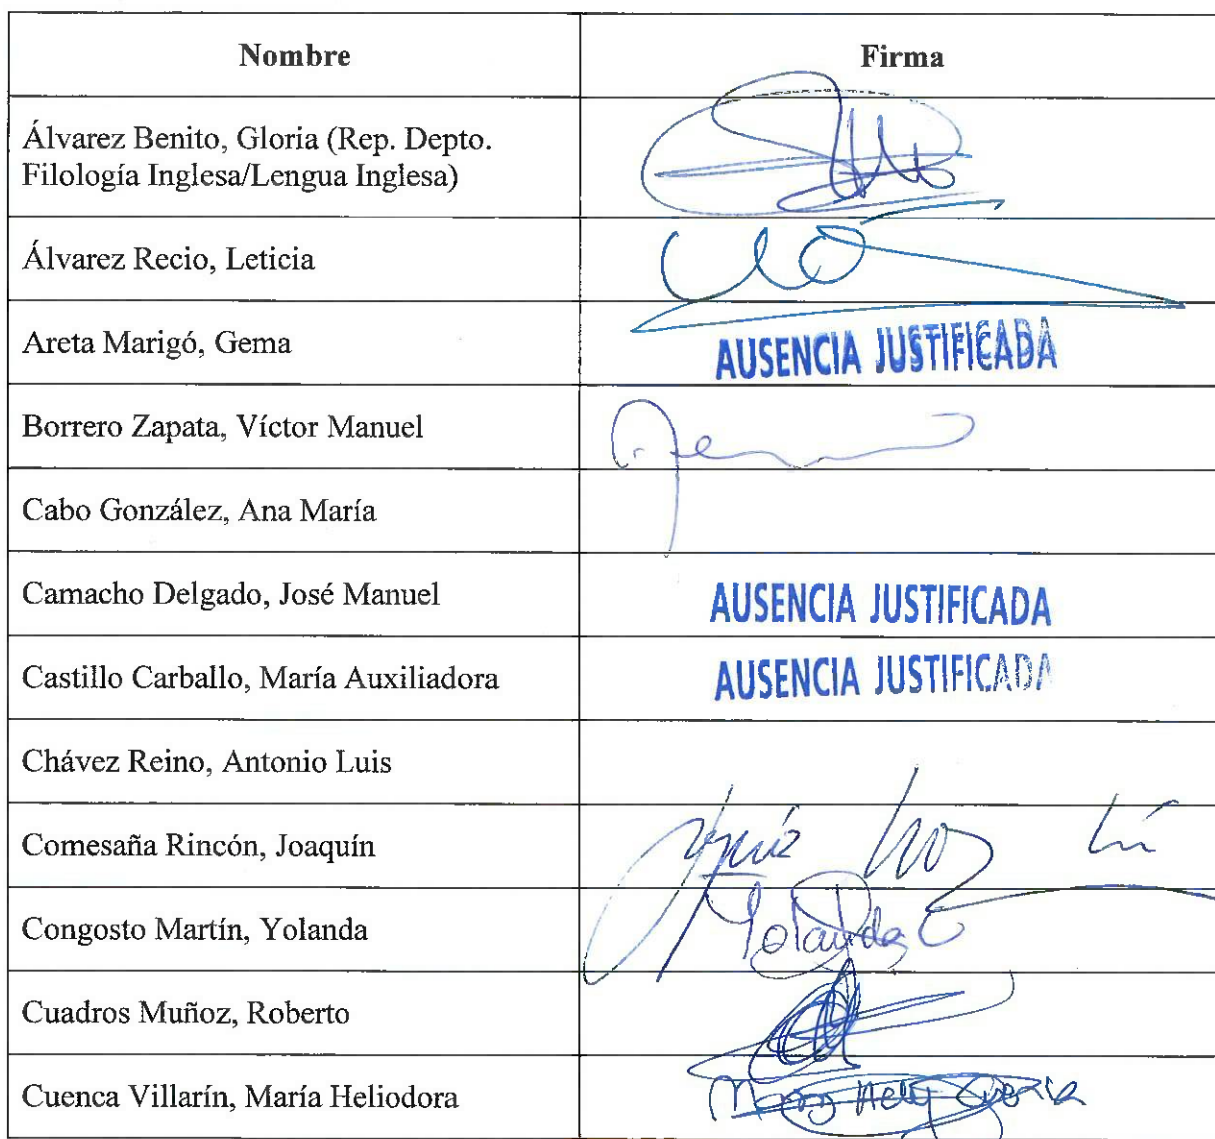 Nombre
Firma
Álvarez Benito, Gloria (Rep. Depto.
Filología Inglesa/Lengua Inglesa)
Álvarez Recio, Leticia
Areta Marigó, Gema
AUSENCIA JUSTIFICADA
Borrero Zapata, Víctor Manuel
Cabo González, Ana María
Camacho Delgado, José Manuel
AUSENCIA JUSTIFICADA
Castillo Carballo, María Auxiliadora
AUSENCIA JUSTIFICADA
Chávez Reino, Antonio Luis
Comesaña Rincón, Joaquín
Congosto Martín, Yolanda
Yolanda C
Cuadros Muñoz, Roberto
Cuenca Villarín, María Heliodora